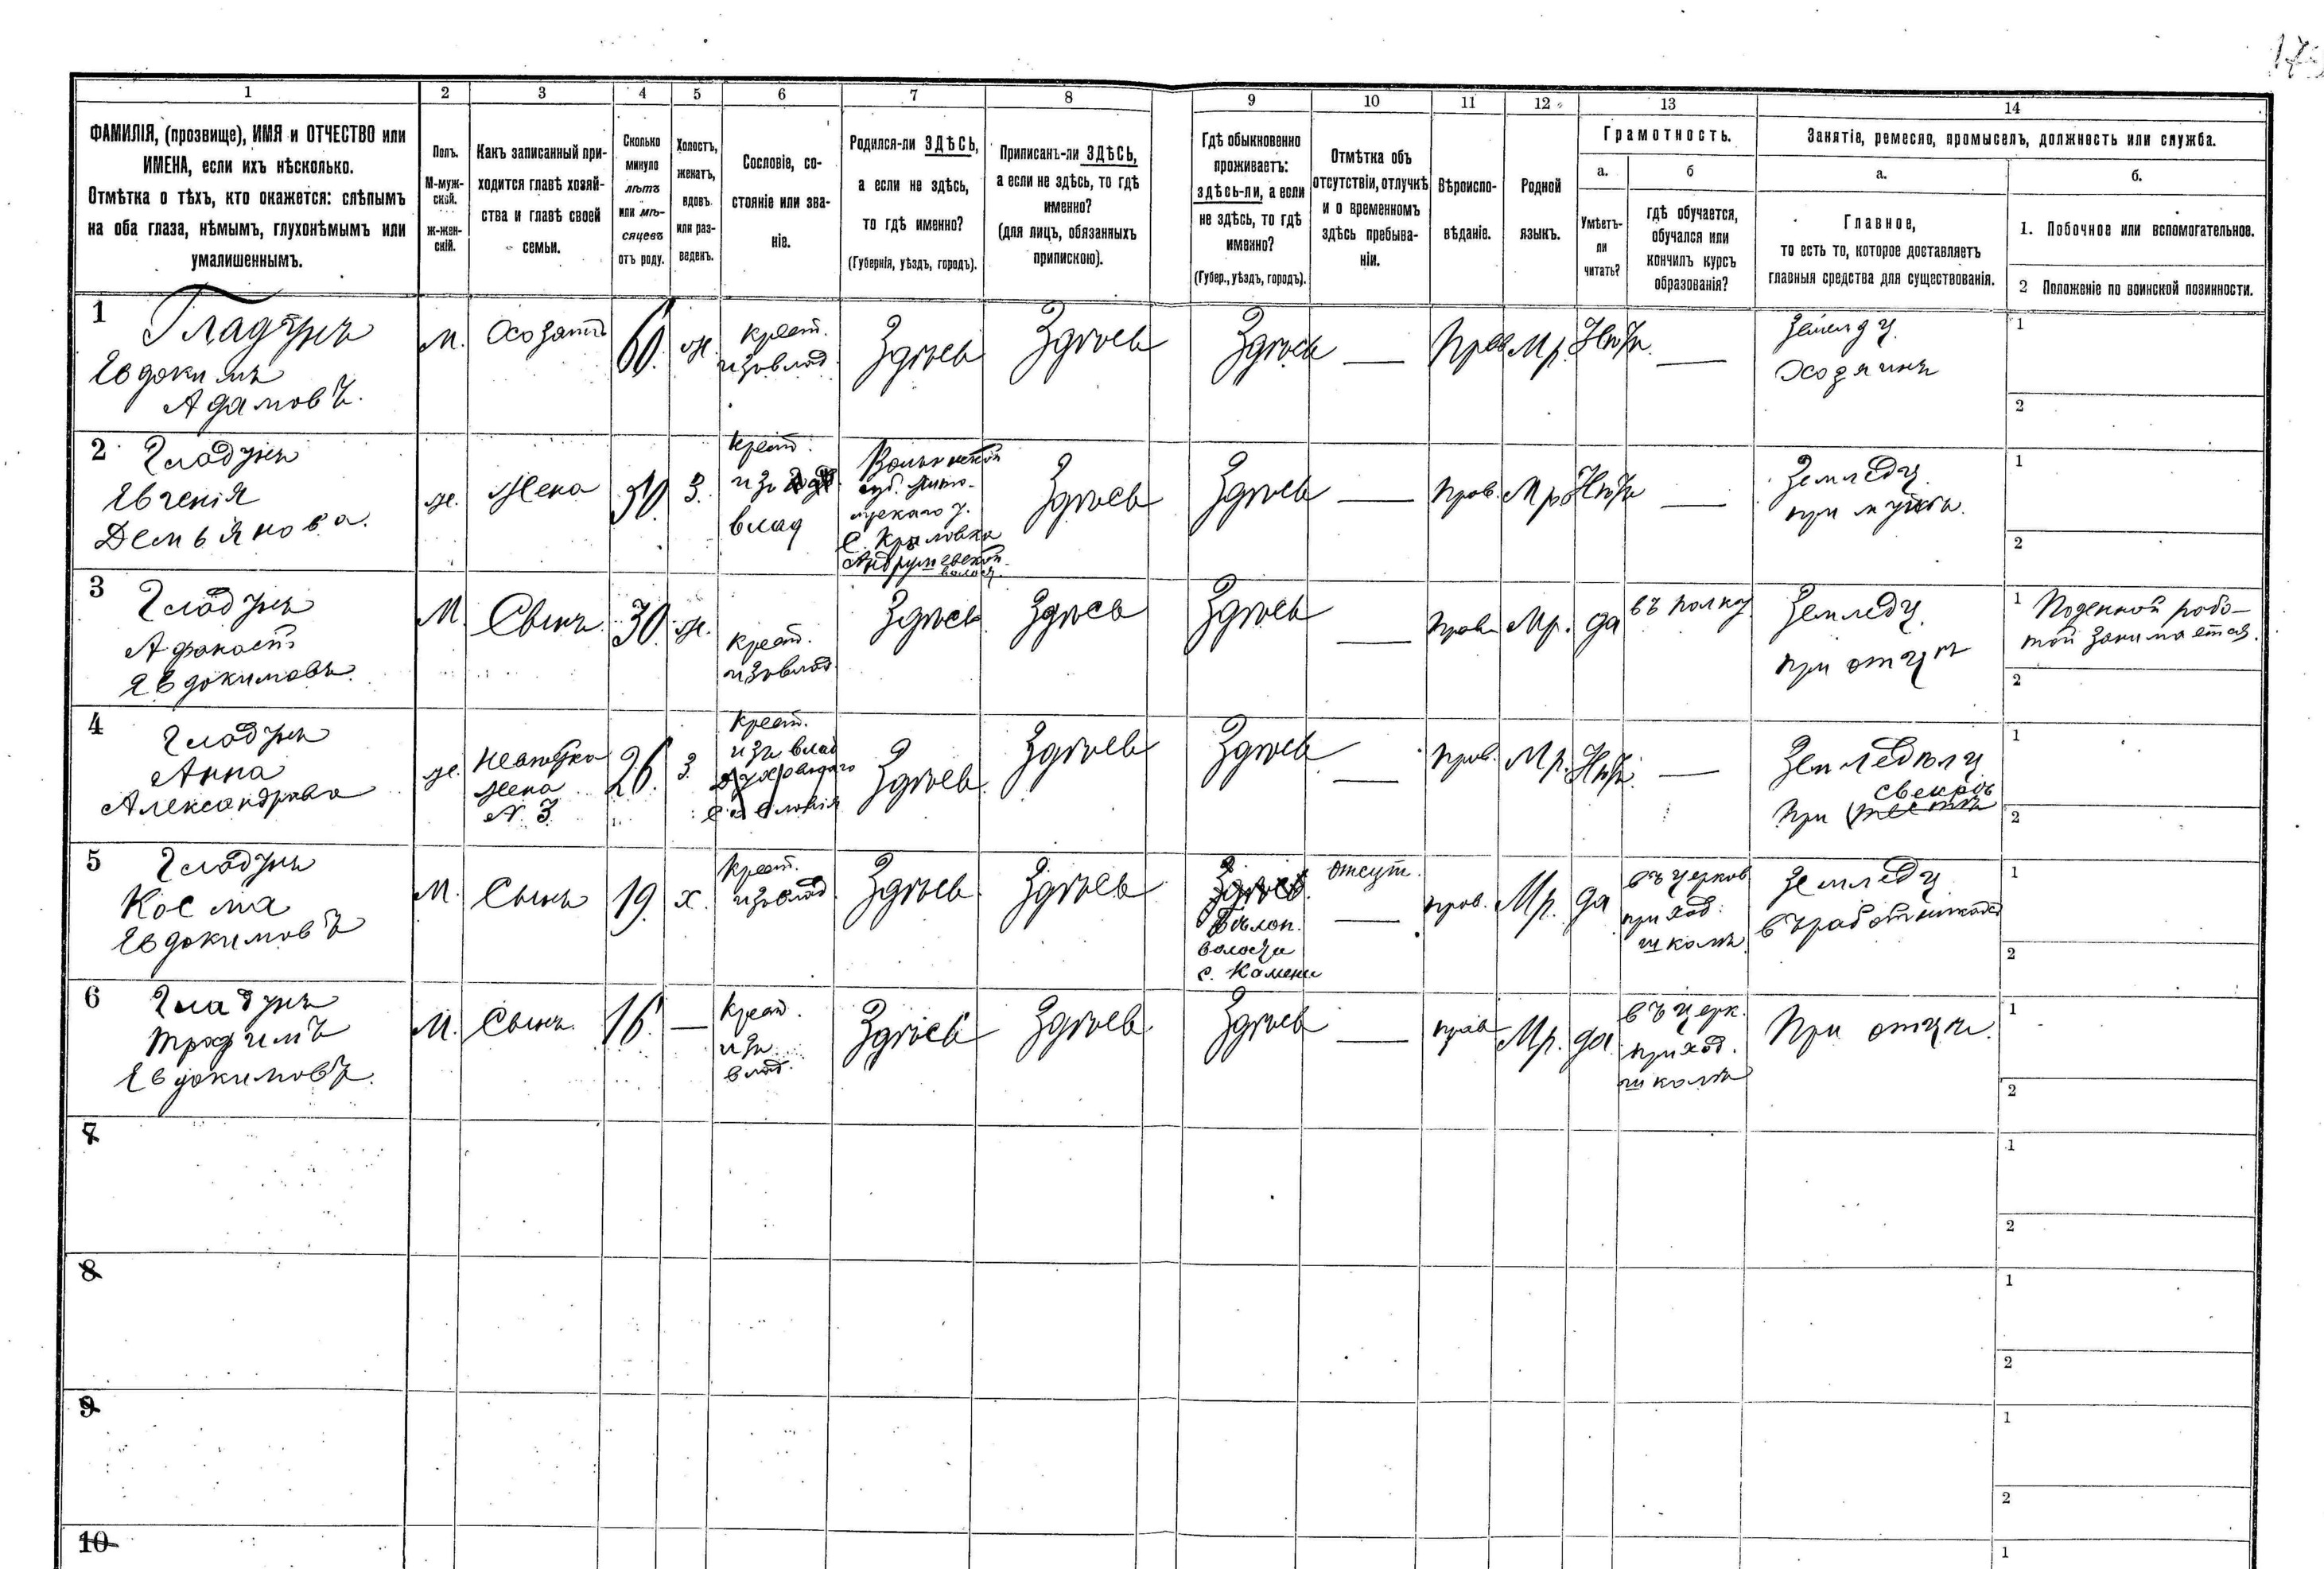 1 2 3 4 5 6 7 8 9 10 11 12 13 14
ФАМИЛІЯ, (прозвище), ИМЯ и ОТЧЕСТВО или
ИМЕНА, если ихъ нѣсколько.
Отмѣтка о тѣхъ, кто окажется: слѣпымъ
на оба глаза, нѣмымъ, глухонѣмымъ или
умалишеннымъ.
Полъ.
М-муж-
ской.
ж-жен-
скій.
Какъ записанный при-
ходится главѣ хозяй-
ства и главѣ своей
семьи.
Сколько
минуло
лѣтъ
или мѣ-
сяцевъ
отъ роду.
Холостъ,
женатъ,
вдовъ
или раз-
веденъ.
Сословіе, со-
стояніе или зва-
ніе.
Родился-ли ЗДѢСЬ,
а если не здѣсь,
то гдѣ именно?
(Губернія, уѣздъ, городъ).
Приписанъ-ли ЗДѢСЬ,
а если не здѣсь, то гдѣ
именно?
(для лицъ, обязанныхъ
припискою).
Гдѣ обыкновенно
проживаетъ:
здѣсь-ли, а если
не здѣсь, то гдѣ
именно?
(Губер., уѣздъ, городъ).
Отмѣтка объ
отсутствіи, отлучкѣ
и о временномъ
здѣсь пребыва-
ніи.
Вѣроиспо-
вѣданіе.
Родной
языкъ.
Грамотность.
а.
Умѣетъ-
ли
читать?
б
гдѣ обучается,
обучался или
кончилъ курсъ
образованія?
Занятіе, ремесло, промыселъ, должность или служба.
а.
Главное,
то есть то, которое доставляетъ
главныя средства для существованія.
б.
1. Побочное или вспомогательное.
2 Положеніе по воинской повинности.
1 Гладунъ
Евдокимъ
Адамовъ.
М.
Хозяинъ
60.
ж.
крест.
изъ влад.
Здѣсь
Здѣсь
Здѣсь
—
Прав
Мр.
Нѣтъ.
—
Земледѣл.
Хозяинъ
1
2
2 Гладунъ
Евгенія
Демьянова.
ж.
Жена
50.
З.
Крест.
изъ
влад
Волынской
губ. Жито-
мірскаго у.
с. Крыловка
Андрушевской
волост.
Здѣсь
Здѣсь
—
прав.
Мр
Нѣтъ
—
Земледѣл.
при мужѣ.
1
2
3 Гладунъ
Афанасій
Евдокимовъ.
М.
Сынъ.
30.
ж.
крест.
изъ влад
Здѣсь
Здѣсь
Здѣсь
—
прав
Мр.
да
въ полку
Земледѣл.
при отцѣ
1 Поденной рабо-
той занимается.
2
4 Гладунъ
Анна
Александрова
ж.
невѣстка
жена
N. 3
26.
З.
Крест.
изъ влад
Здѣсь
Здѣсь
Здѣсь
—
прав.
Мр.
Нѣтъ.
—
Земледѣлц
свекрѣ
при тестѣ
1
2
5 Гладунъ
Косма
Евдокимовъ
М.
Сынъ
19.
х.
Крест.
изъ влад.
Здѣсь
Здѣсь
Здѣсь
волости
с. Камени
отсут.
—
прав.
Мр.
да
въ церков
приход.
школѣ
Земледѣл
въ работникахъ
1
2
6 Гладунъ
Трофимъ
Евдокимовъ.
М.
Сынъ.
16.
—
Крест.
изъ
влад.
Здѣсь
Здѣсь
Здѣсь
—
прав
Мр.
да
въ церк.
приход.
школѣ
При отцѣ.
1
2
7
1
2
8
1
2
9
1
2
10
1